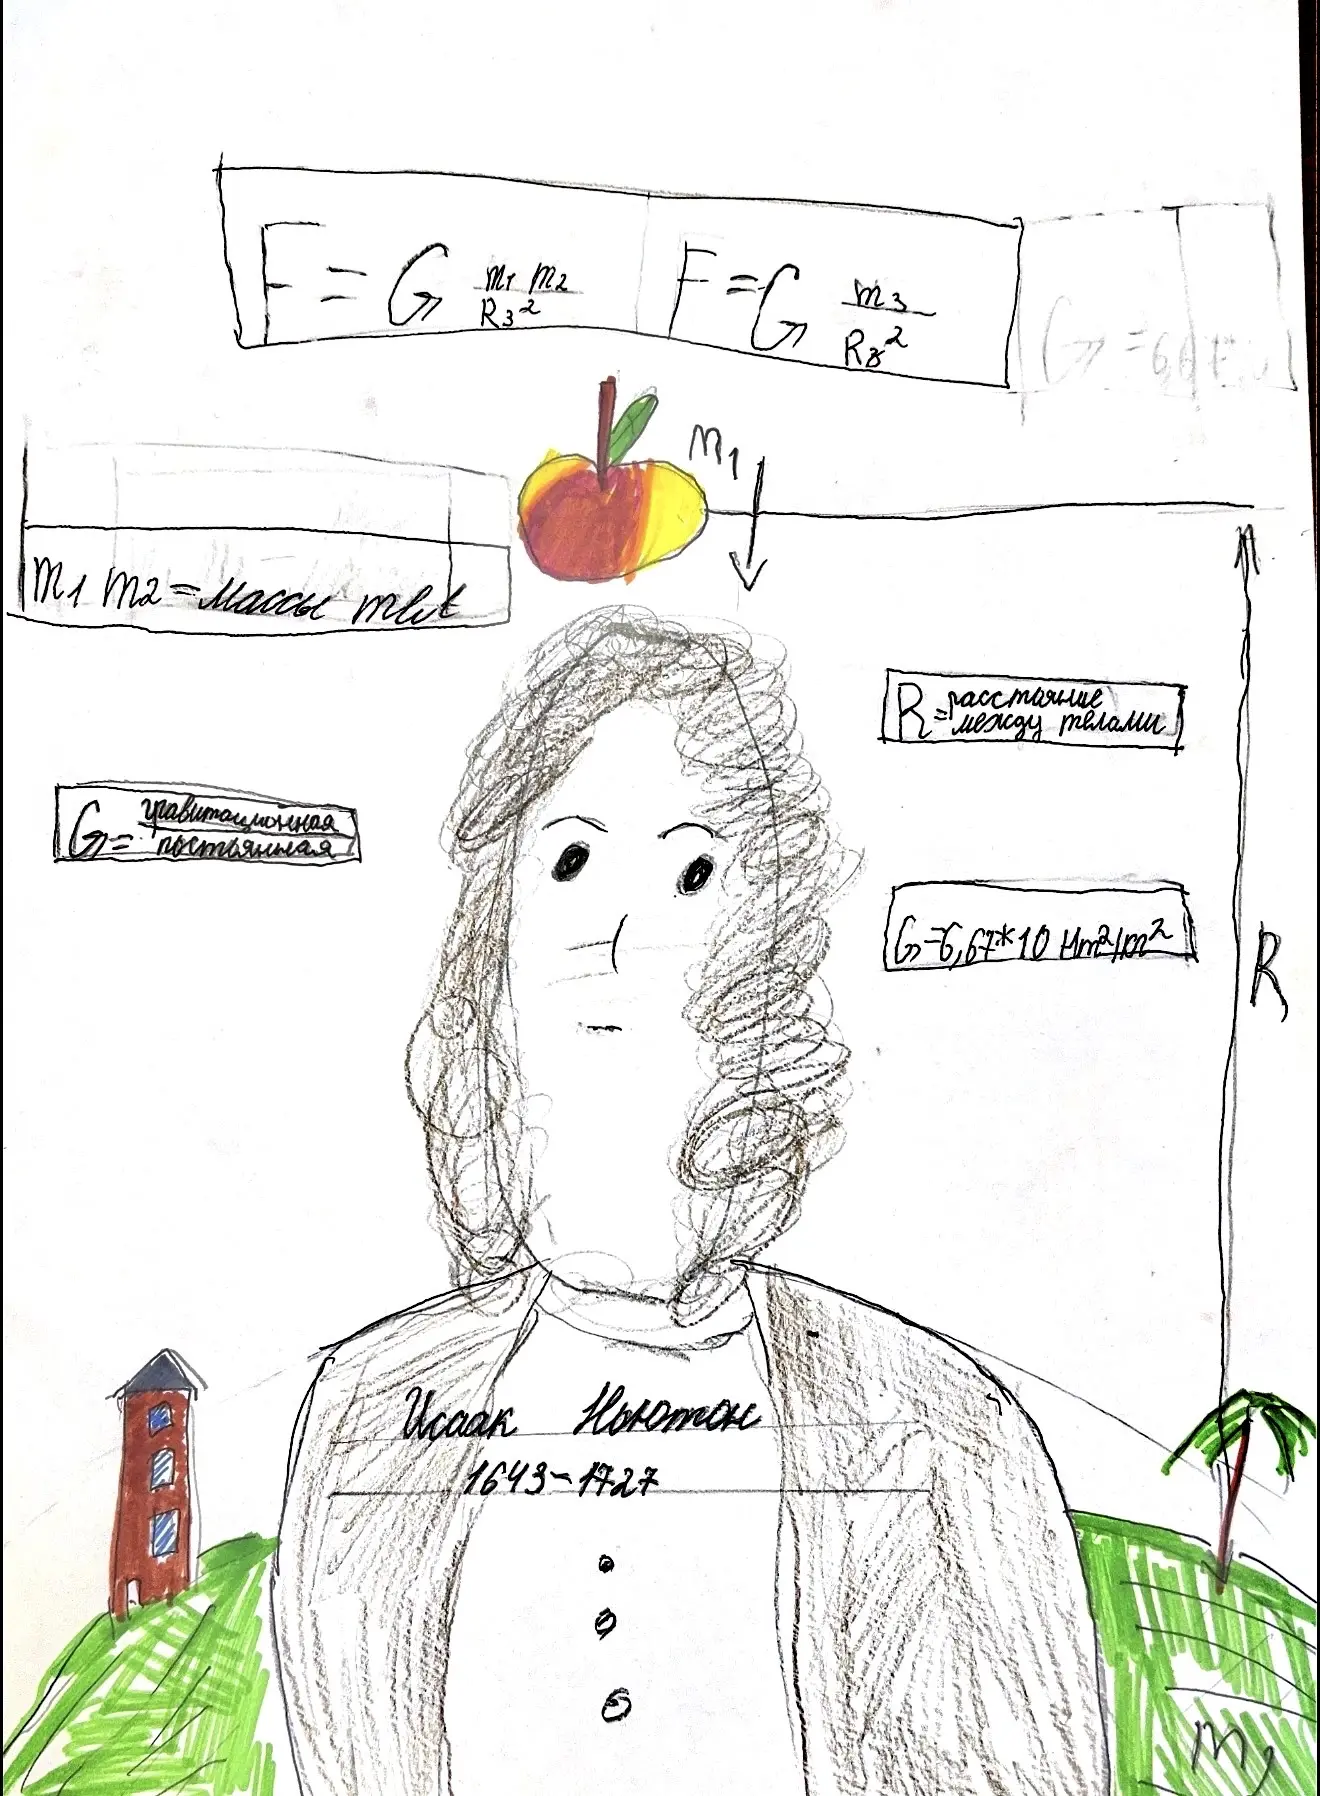 F = G m₁ m₂ / R₃² F = G m₃ / R₃²
m₁
m₁ m₂ = массы тел
R = расстояние
между телами
G = гравитационная
постоянная
G = 6,67*10 Нm²/кг²
R
Исаак Ньютон
1643-1727